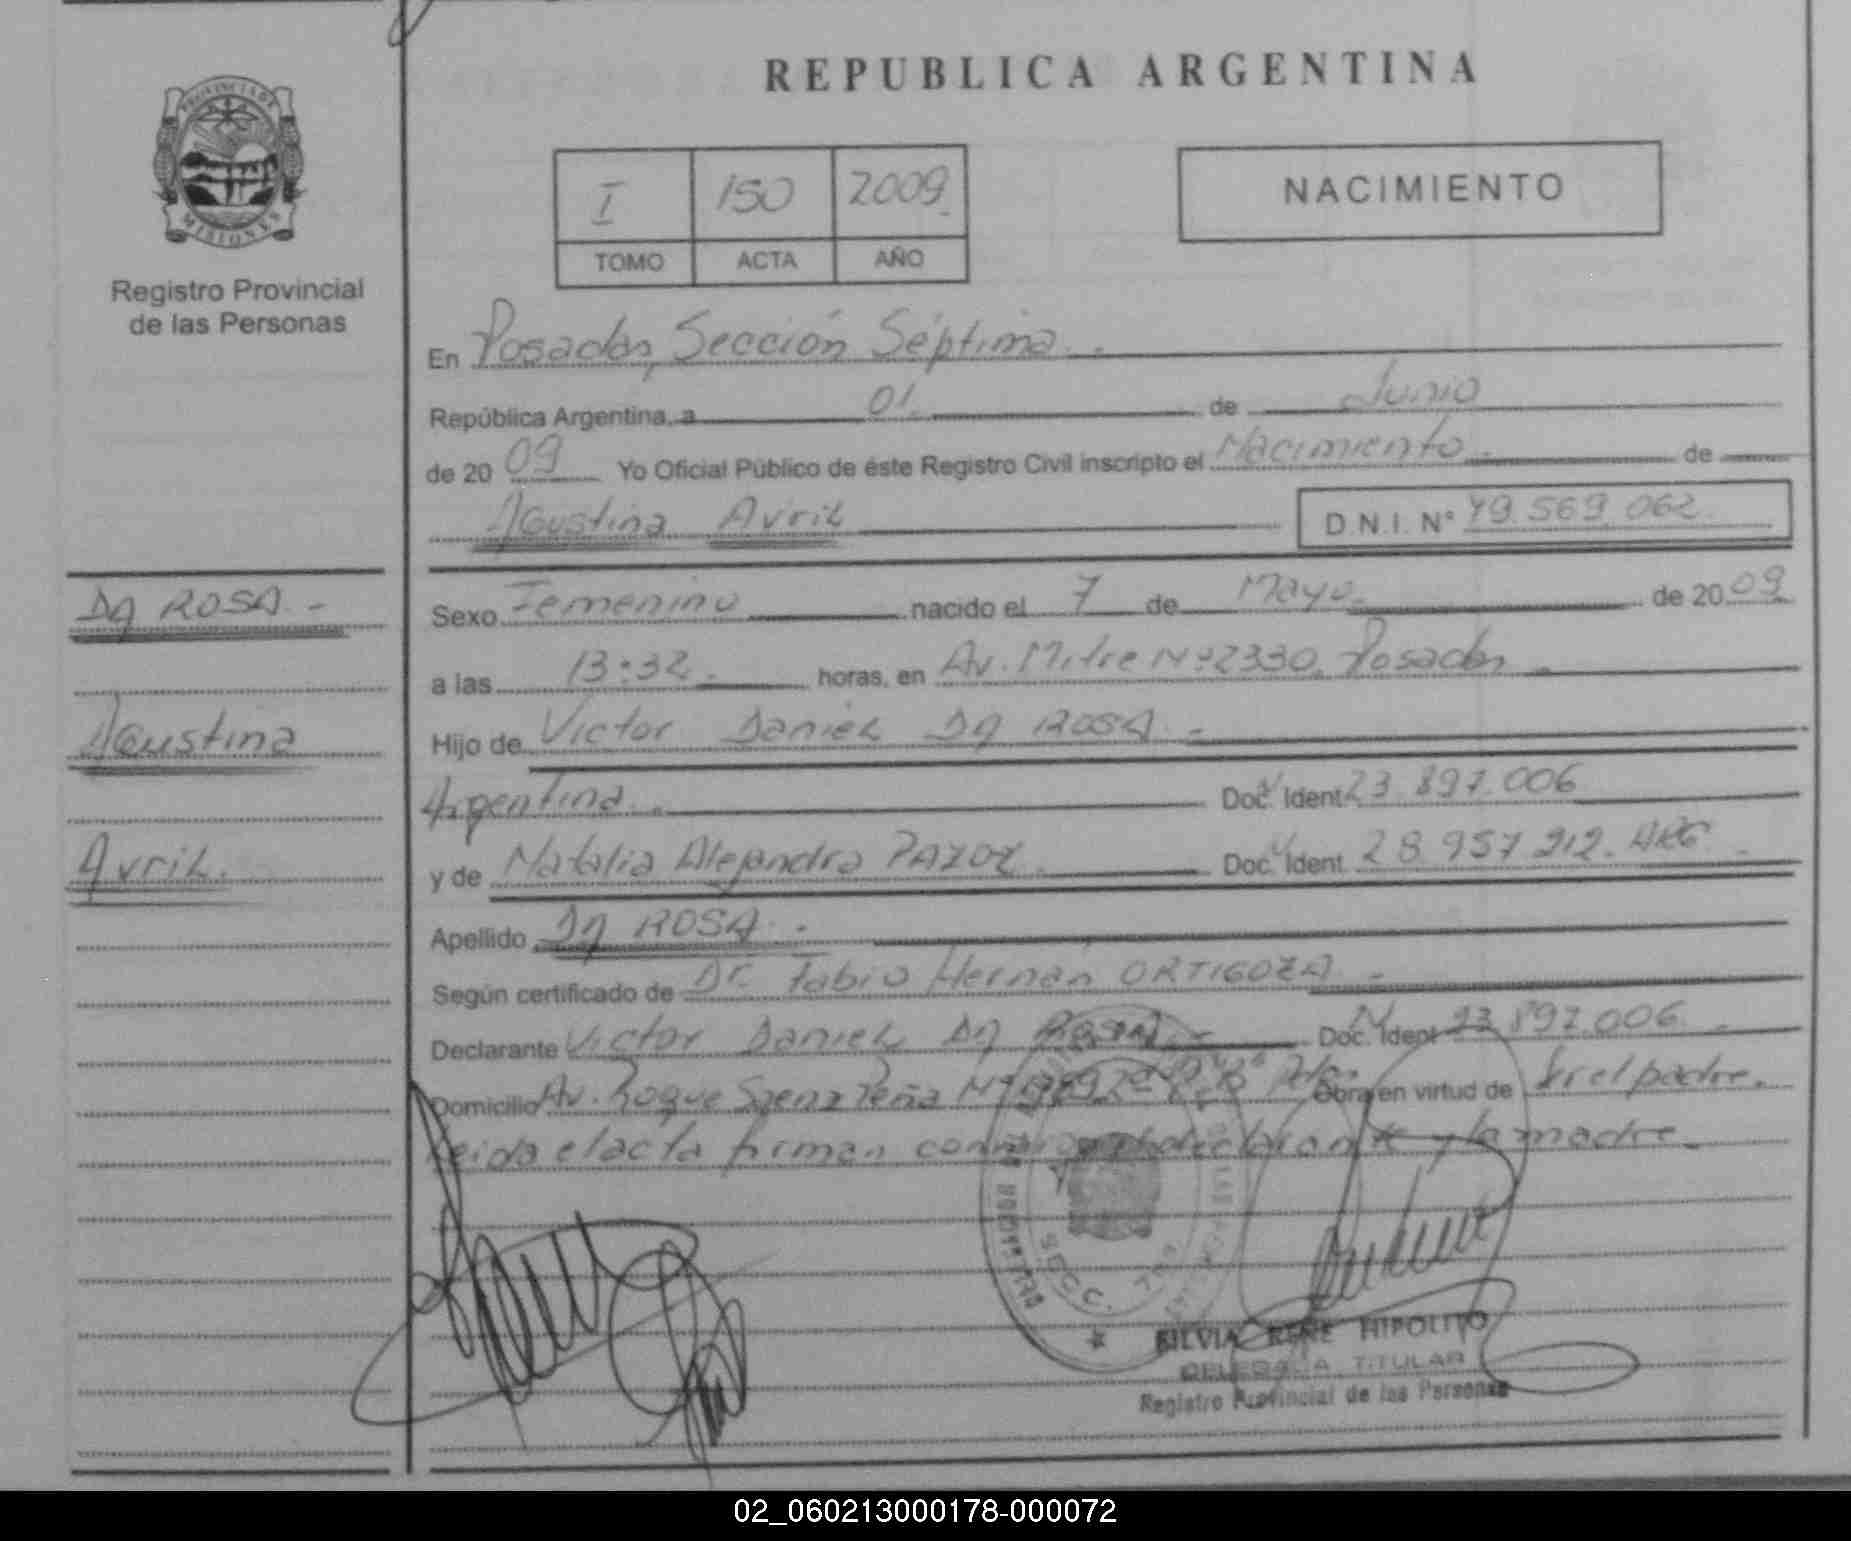 REPUBLICA ARGENTINA
PROVINCIA DE
MISIONES
Registro Provincial
de las Personas
I 150 2009
TOMO ACTA AÑO
NACIMIENTO
En Posadas, Sección Séptima.-
República Argentina, a 01. de Junio
de 2009 Yo Oficial Público de éste Registro Civil inscripto el Nacimiento.- de
Agustina Avril D.N.I. N° 49.569.062.
DA ROSA.-
Agustina
Avril.
Sexo Femenino nacido el 7 de Mayo.- de 2009
a las 13:32.- horas, en Av. Mitre Nº 2330, Posadas.-
Hijo de Victor Daniel DA ROSA.-
Argentina.- Doc. Ident 23.897.006
y de Natalia Alejandra Doc. Ident. 28.957.212. ARG.-
Apellido DA ROSA.-
Según certificado de Dr. Fabio Hernán ORTIGOZA.-
Declarante Victor Daniel DA ROSA.- Doc. Ident 23.897.006.-
Domicilio Av. Roque Saenz Peña Obra en virtud de Ser el padre.
Leida el acta firman conmigo el declarante y la madre.-
SECC. 7ma
SILVIA RENE HIPOLITO
DELEGADA TITULAR
Registro Provincial de las Personas
02_060213000178-000072